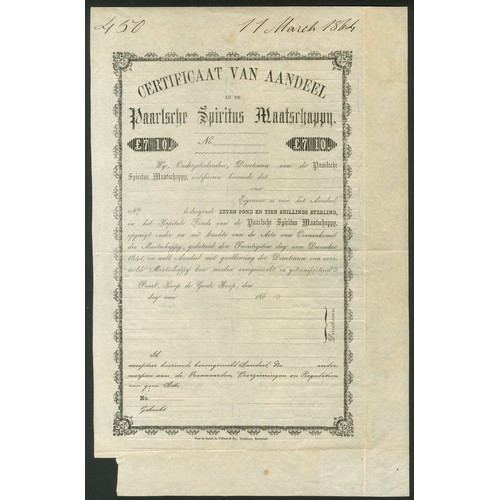 450 11 March 1864
CERTIFICAAT VAN AANDEEL
IN DE
Paarlsche Spiritus Maatschappy.
£7 10 No. £7 10
Wy, Ondergetekenden, Directeuren van de Paarlsche
Spiritus Maatschappy, certificeren hiermede dat
van
Eigenaar is van het Aandeel
No. bedragende ZEVEN POND EN TIEN SHILLINGS STERLING,
in het Kapitale Fonds van de Paarlsche Spiritus Maatschappy,
opgerigt onder en uit krachte van de Acte van Overeenkomst
der Maatschappy, gedateerd den Twintigsten dag van December
en welk Aandeel met goedkeuring der Directeuren van
Maatschappy kan worden overgemaakt
Paarl, Kaap de Goede Hoop, den
dag van 186
Directeuren.
Ik
accepteer hiermede bovengemeld Aandeel, No. onder-
worpen aan de Voorwaarden, Voorzieningen en Regulatien
van gem. Acte
No.
Geboekt